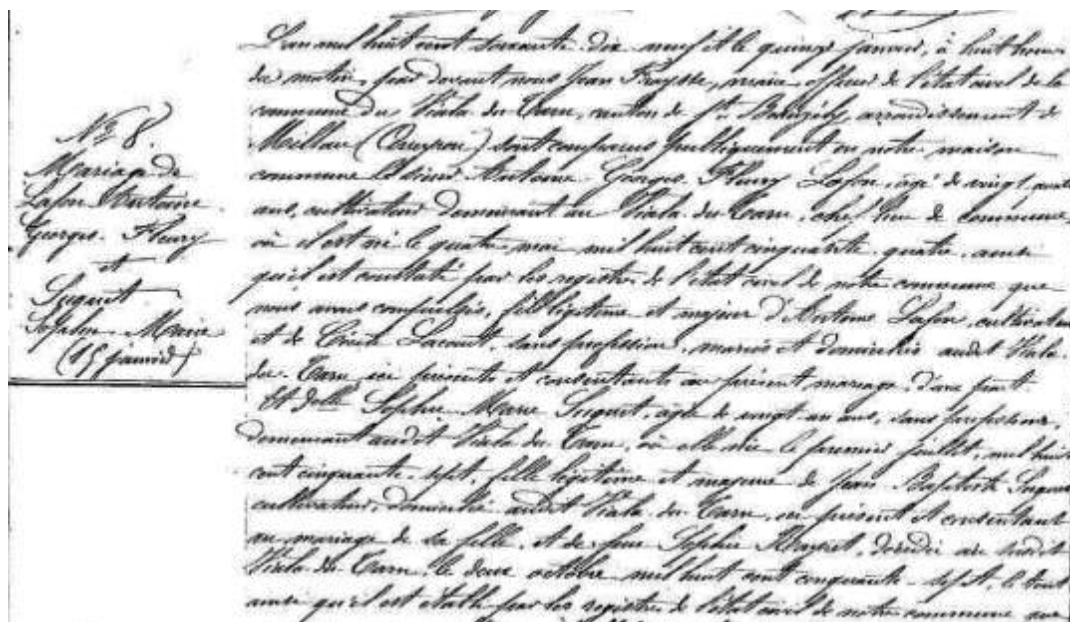 N° 8.
Mariage de
Lafon Antoine
Georges Fleury
et
Suquet
Sophie Marie
(15 janvier)
L'an mil huit cent soixante dix neuf et le quinze janvier, à huit heures
du matin, par devant nous Jean Fraysse, maire officier de l'état civil de la
commune du Viala du Tarn, canton de St Beauzély, arrondissement de
Millau (Aveyron) sont comparus publiquement en notre maison
commune le sieur Antoine Georges Fleury Lafon, âgé de vingt quatre
ans, cultivateur demeurant au Viala du Tarn, chef lieu de commune,
où il est né le quatre mai mil huit cent cinquante quatre, ainsi
qu'il est constaté par les registres de l'état civil de notre commune que
nous avons compulsés, fils légitime et majeur d'Antoine Lafon, cultivateur
et de Lacout, sans profession, mariés et domiciliés audit Viala
du Tarn, ici présents et consentants au présent mariage, d'une part
Et Delle Sophie Marie Suquet, âgée de vingt un ans, sans profession,
demeurant audit Viala du Tarn, où elle née le premier juillet, mil huit
cent cinquante sept, fille légitime et majeure de Jean Baptiste Suquet
cultivateur, domicilié audit Viala du Tarn, ici présent et consentant
au mariage de sa fille, et de feue Sophie, décédée au susdit
Viala du Tarn, le deux octobre mil huit cent cinquante sept, le tout
ainsi qu'il est établi par les registres de l'état civil de notre commune que